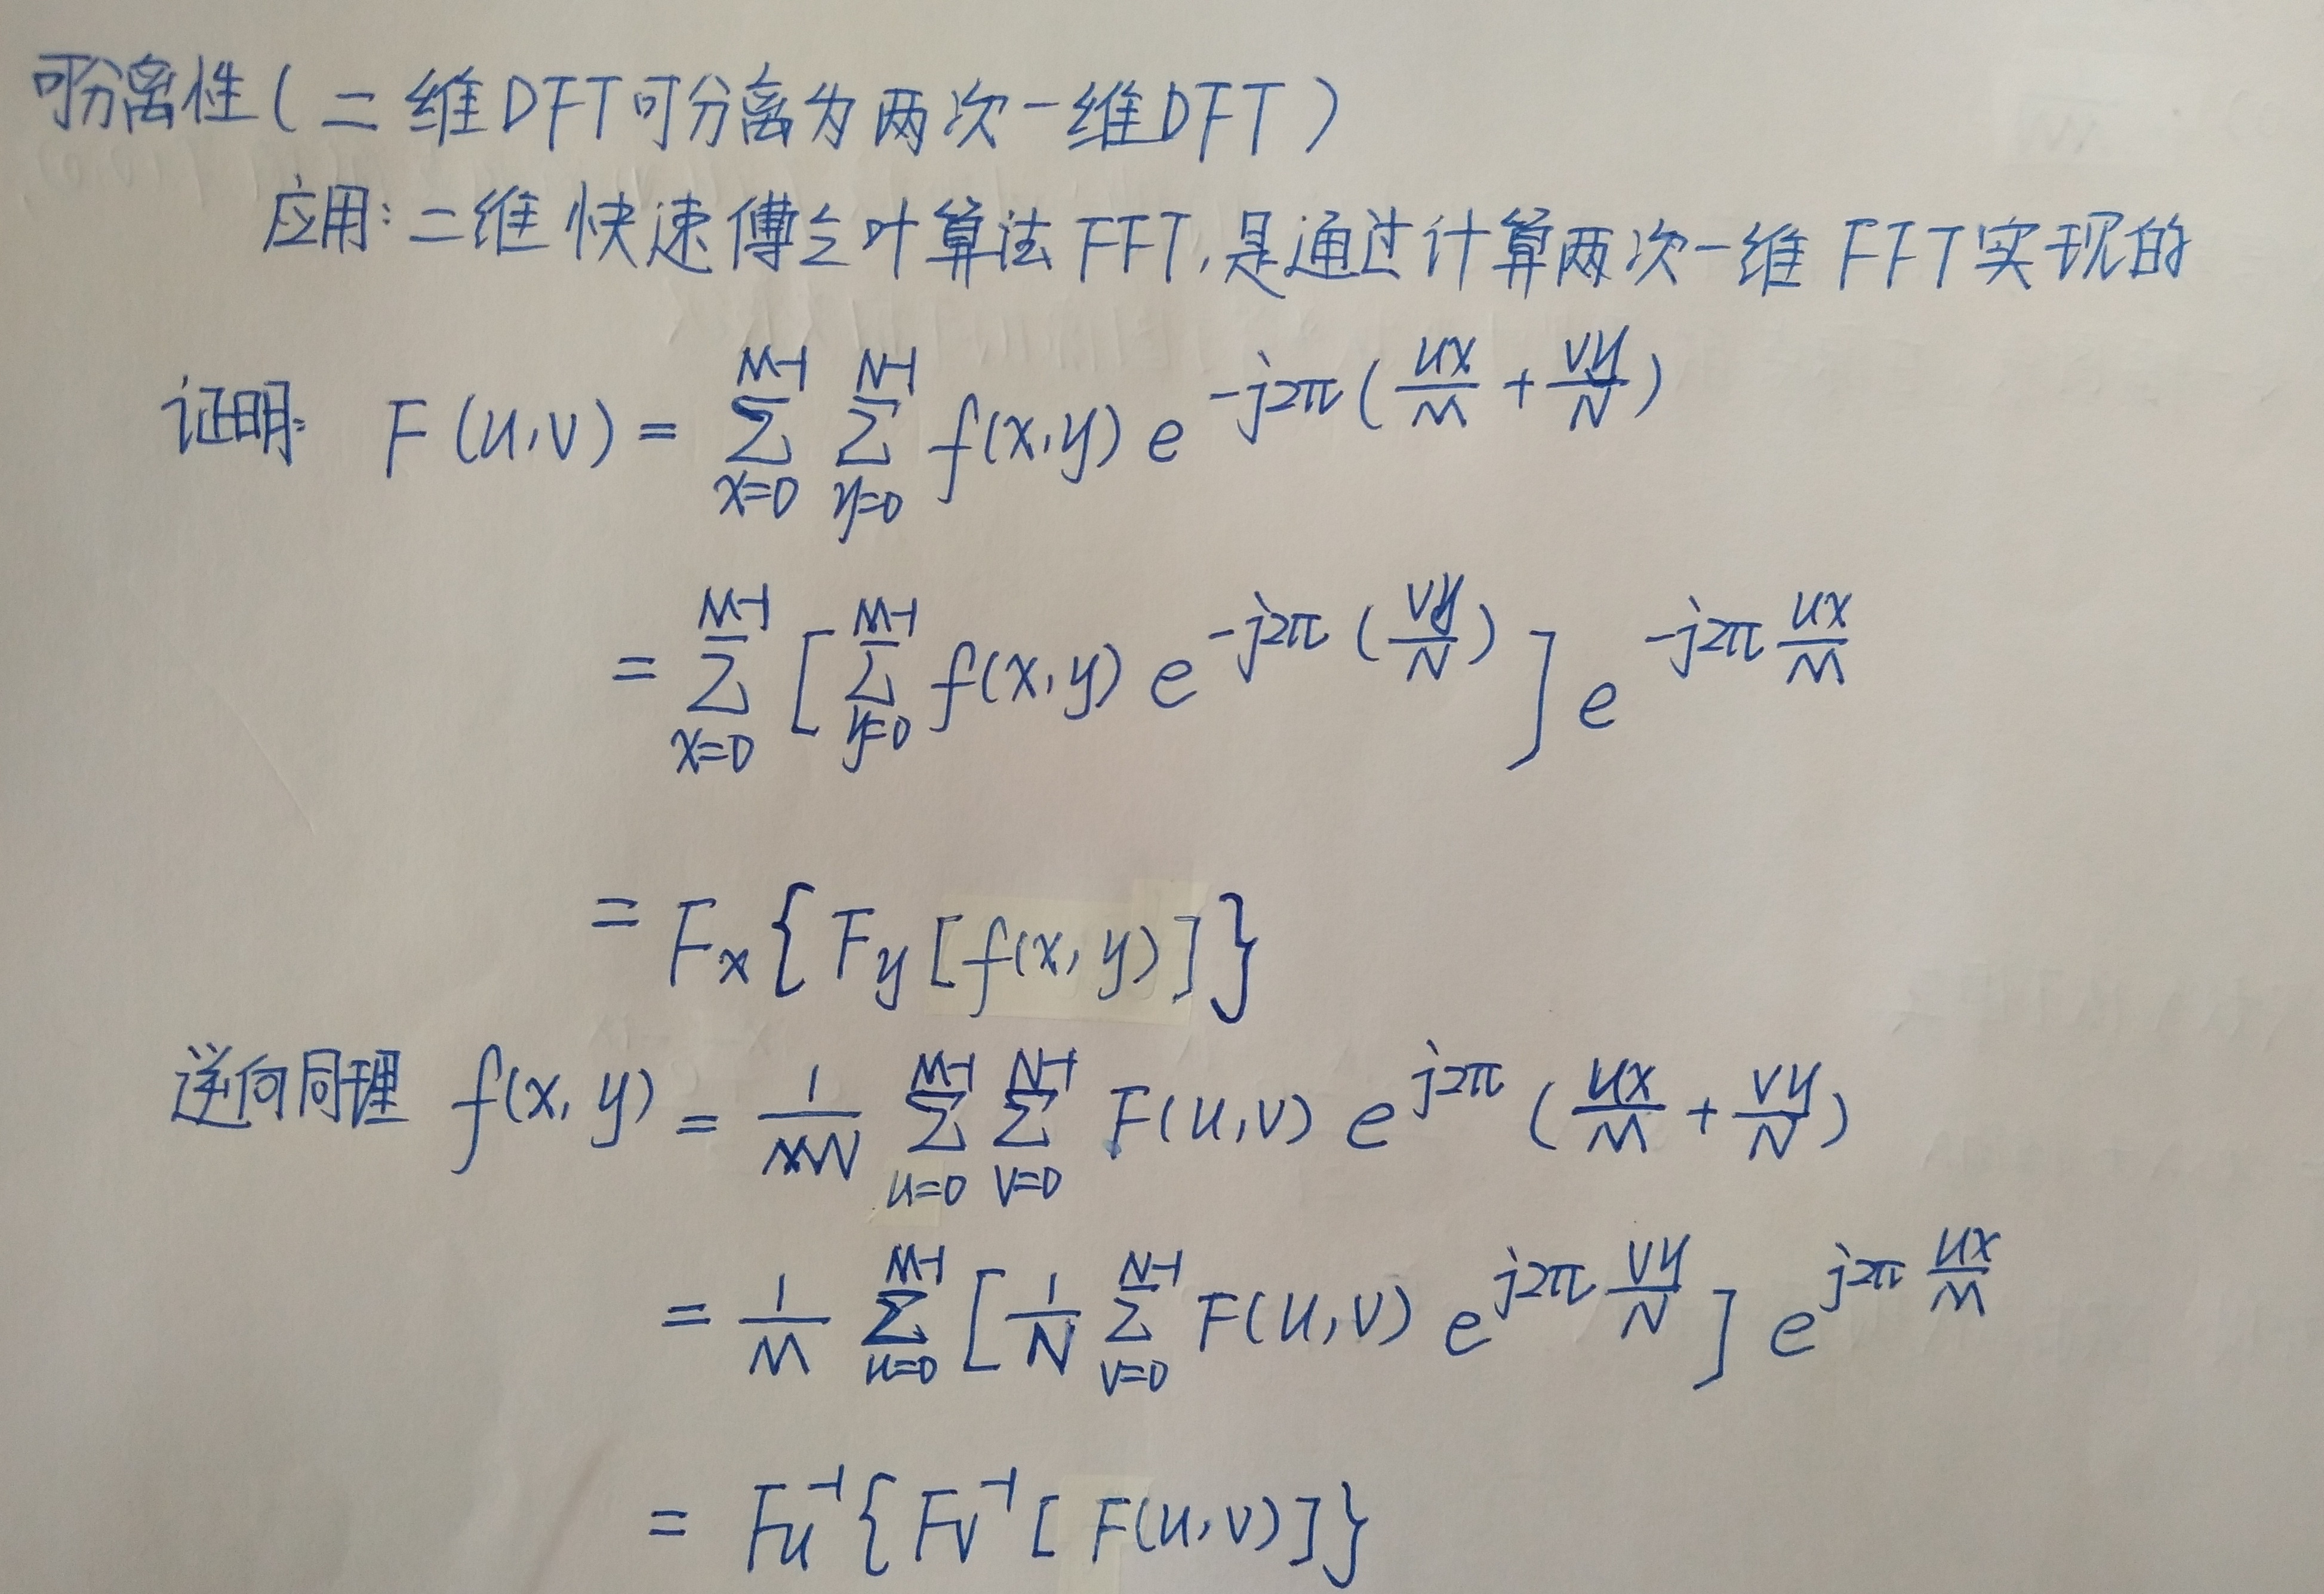 可分离性(二维DFT可分离为两次一维DFT)
应用:二维快速傅立叶算法FFT,是通过计算两次一维FFT实现的
证明: F(u,v) = \sum_{x=0}^{M-1} \sum_{y=0}^{N-1} f(x,y) e^{-j2π(\frac{ux}{M}+\frac{vy}{N})}
= \sum_{x=0}^{M-1} [ \sum_{y=0}^{M-1} f(x,y) e^{-j2π(\frac{vy}{N})} ] e^{-j2π\frac{ux}{M}}
= F_x{F_y[f(x,y)]}
逆向同理 f(x,y) = \frac{1}{MN} \sum_{u=0}^{M-1} \sum_{v=0}^{N-1} F(u,v) e^{j2π(\frac{ux}{M}+\frac{vy}{N})}
= \frac{1}{M} \sum_{u=0}^{M-1} [ \frac{1}{N} \sum_{v=0}^{N-1} F(u,v) e^{j2π\frac{vy}{N}} ] e^{j2π\frac{ux}{M}}
= F_u^{-1}{F_v^{-1}[F(u,v)]}